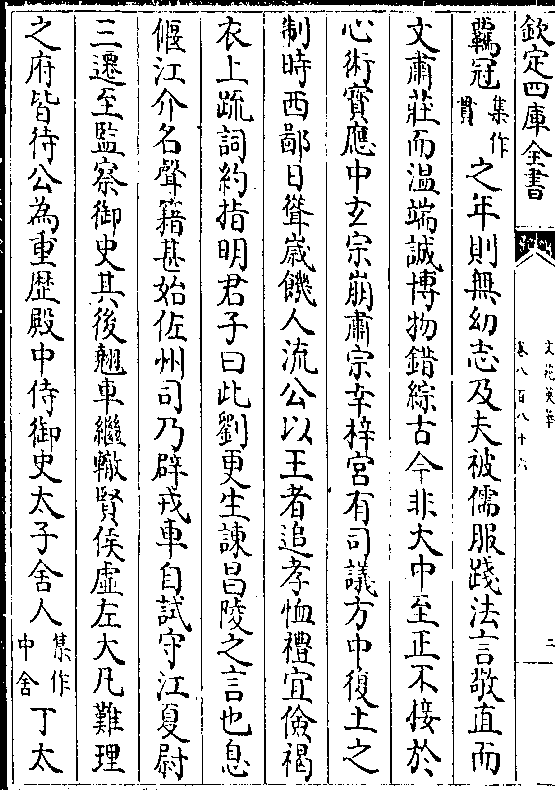 欽定四庫全書
文苑英華
卷八百八十六
二
羈冠集作貫之年則無幼志及夫被儒服踐法言敬直而
文肅莊而温端誠博物錯綜古今非大中至正不接於
心術寳應中玄宗崩肅宗幸梓宮有司議方中復土之
制時西鄙日聳嵗饑人流公以王者追孝恤禮宜儉褐
衣上疏詞約指明君子曰此劉更生諫昌陵之言也息
偃江介名聲籍甚始佐州司乃辟戎車自試守江夏尉
三遷至監察御史其後翹車繼轍賢侯虛左大凡難理
之府皆待公為重歴殿中侍御史太子舍人集作中舍丁太